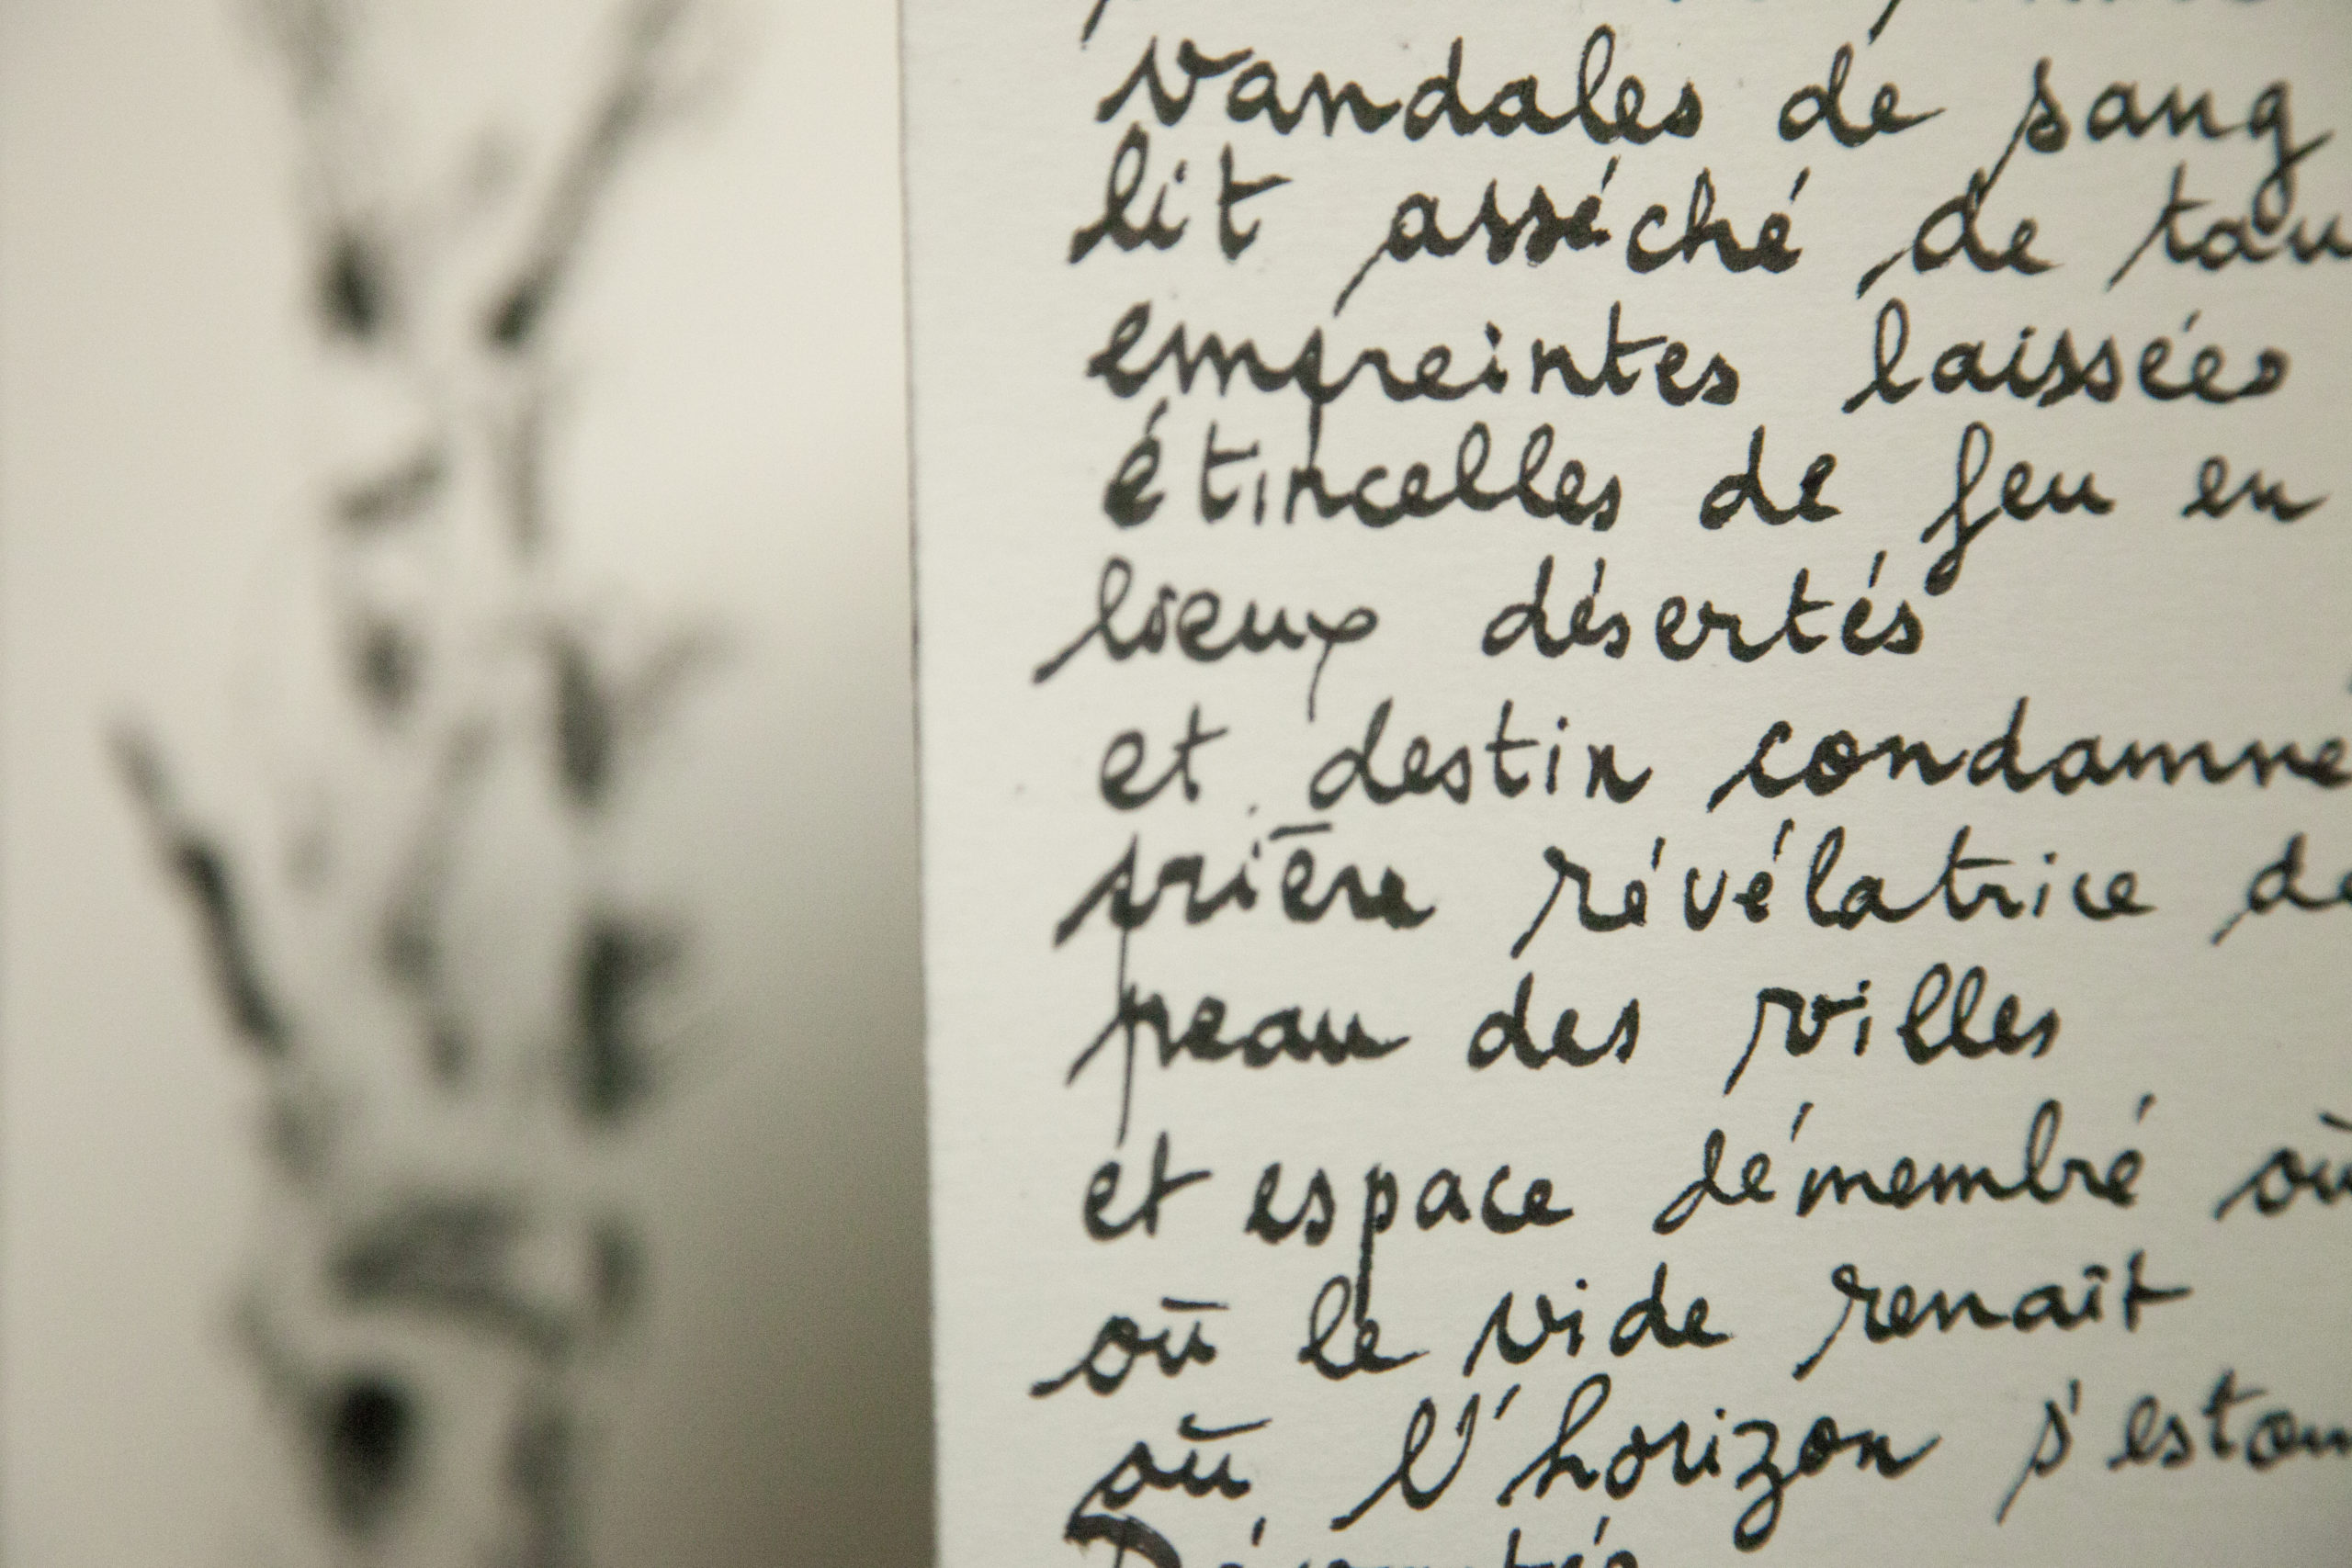 vandales de sang
lit asséché de tau
empreintes laissées
étincelles de feu en
lieux désertés
et destin condamné
prière révélatrice de
peau des villes
et espace démembré où
où le vide renaît
où l'horizon s'estom